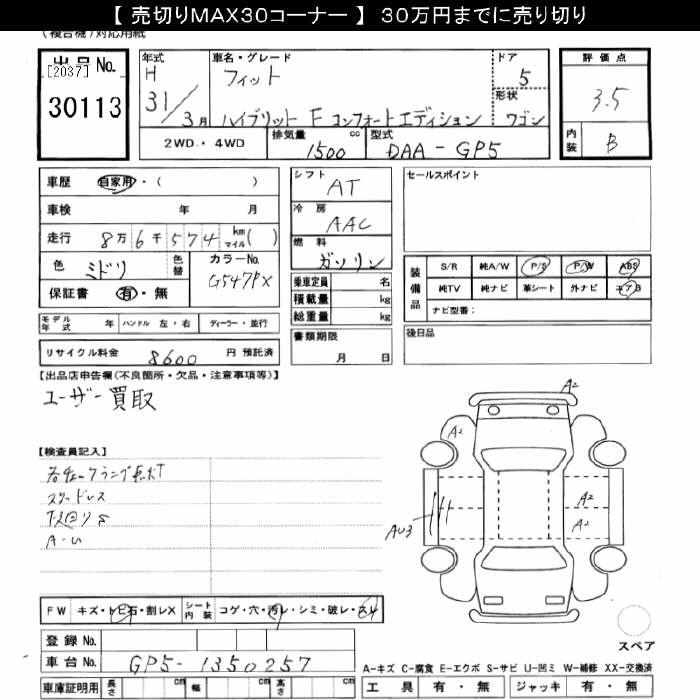 【 売切りMAX30コーナー 】 30万円までに売り切り
(複合機)対応用紙
出品 No.
[2037]
30113
年式
H
31/3月
車名・グレード
フィット
ハイブリット F コンフォートエディション
ドア
5
形状
ワゴン
評価点
3.5
内装
B
2WD. ・ 4WD
排気量
1500 cc
型式
DAA-GP5
車歴 自家用・( )
車検 年 月
走行 8万6千574 km マイル( )
色 ミドリ 色替
カラーNo.
G547PX
保証書 有・無
シフト
AT
冷房
AAC
燃料
ガソリン
乗車定員 名
積載量 kg
総重量 kg
セールスポイント
装備品
S/R 純A/W P/S P/W ABS
純TV 純ナビ 革シート 外ナビ エアB
ナビ型番:
モデル年式 年 ハンドル 左・右 ディーラー・並行
リサイクル料金 8600 円 預託済
書類期限
月 日
後日品
【出品店申告欄(不良箇所・欠品・注意事項等)】
ユーザー買取
【検査員記入】
各チェックランプ点灯
スリードレス
下回りS
A-U
A2
A2
A2
A2
AU3
FW キズ・トビ石・割レX
シート内装 コゲ・穴・汚レ・シミ・破レ・スレ
スペア
登録 No.
車台 No. GP5-1350257
A-キズ C-腐食 E-エクボ S-サビ U-凹ミ W-補修 XX-交換済
車庫証明用 長さ cm 幅 cm 高さ cm
工具 有・無 ジャッキ 有・無